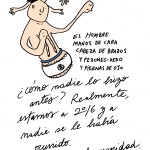 EL HOMBRE
MANOS DE CARA
CABEZA DE BRAZOS
Y PEZONES-DEDO
Y PIERNAS DE
¿cómo nadie lo hizo
antes? Realmente,
estamos a 2016 y a
nadie se le había